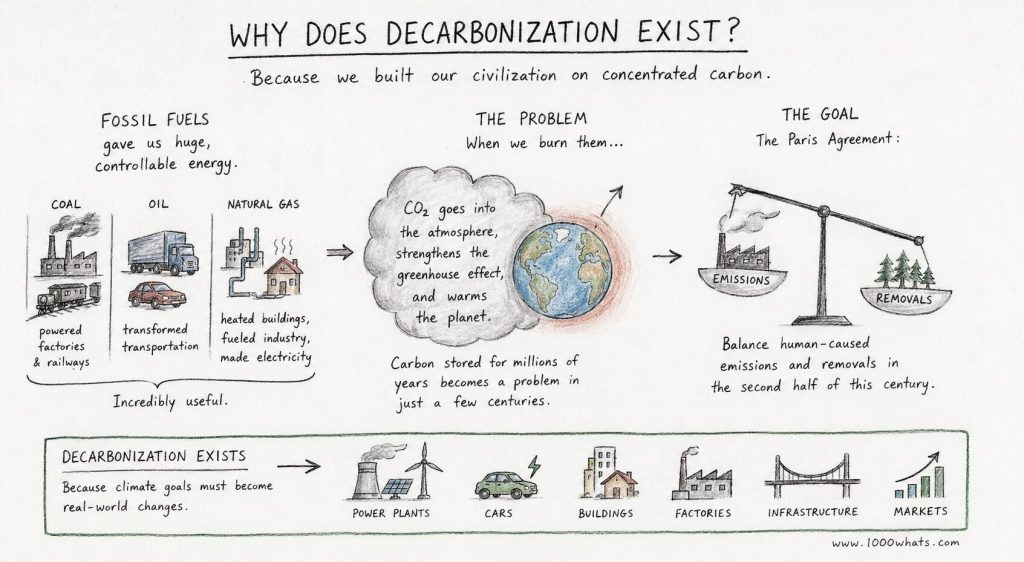 WHY DOES DECARBONIZATION EXIST?
Because we built our civilization on concentrated carbon.
FOSSIL FUELS
gave us huge,
controllable energy.
COAL
powered
factories
& railways
OIL
transformed
transportation
NATURAL GAS
heated buildings,
fueled industry,
made electricity
Incredibly useful.
THE PROBLEM
When we burn them...
CO₂ goes into
the atmosphere,
strengthens the
greenhouse effect,
and warms
the planet.
Carbon stored for millions of
years becomes a problem in
just a few centuries.
THE GOAL
The Paris Agreement:
EMISSIONS
REMOVALS
Balance human-caused
emissions and removals in
the second half of this century.
DECARBONIZATION EXISTS
Because climate goals must become
real-world changes.
POWER PLANTS
CARS
BUILDINGS
FACTORIES
INFRASTRUCTURE
MARKETS
www.1000whats.com